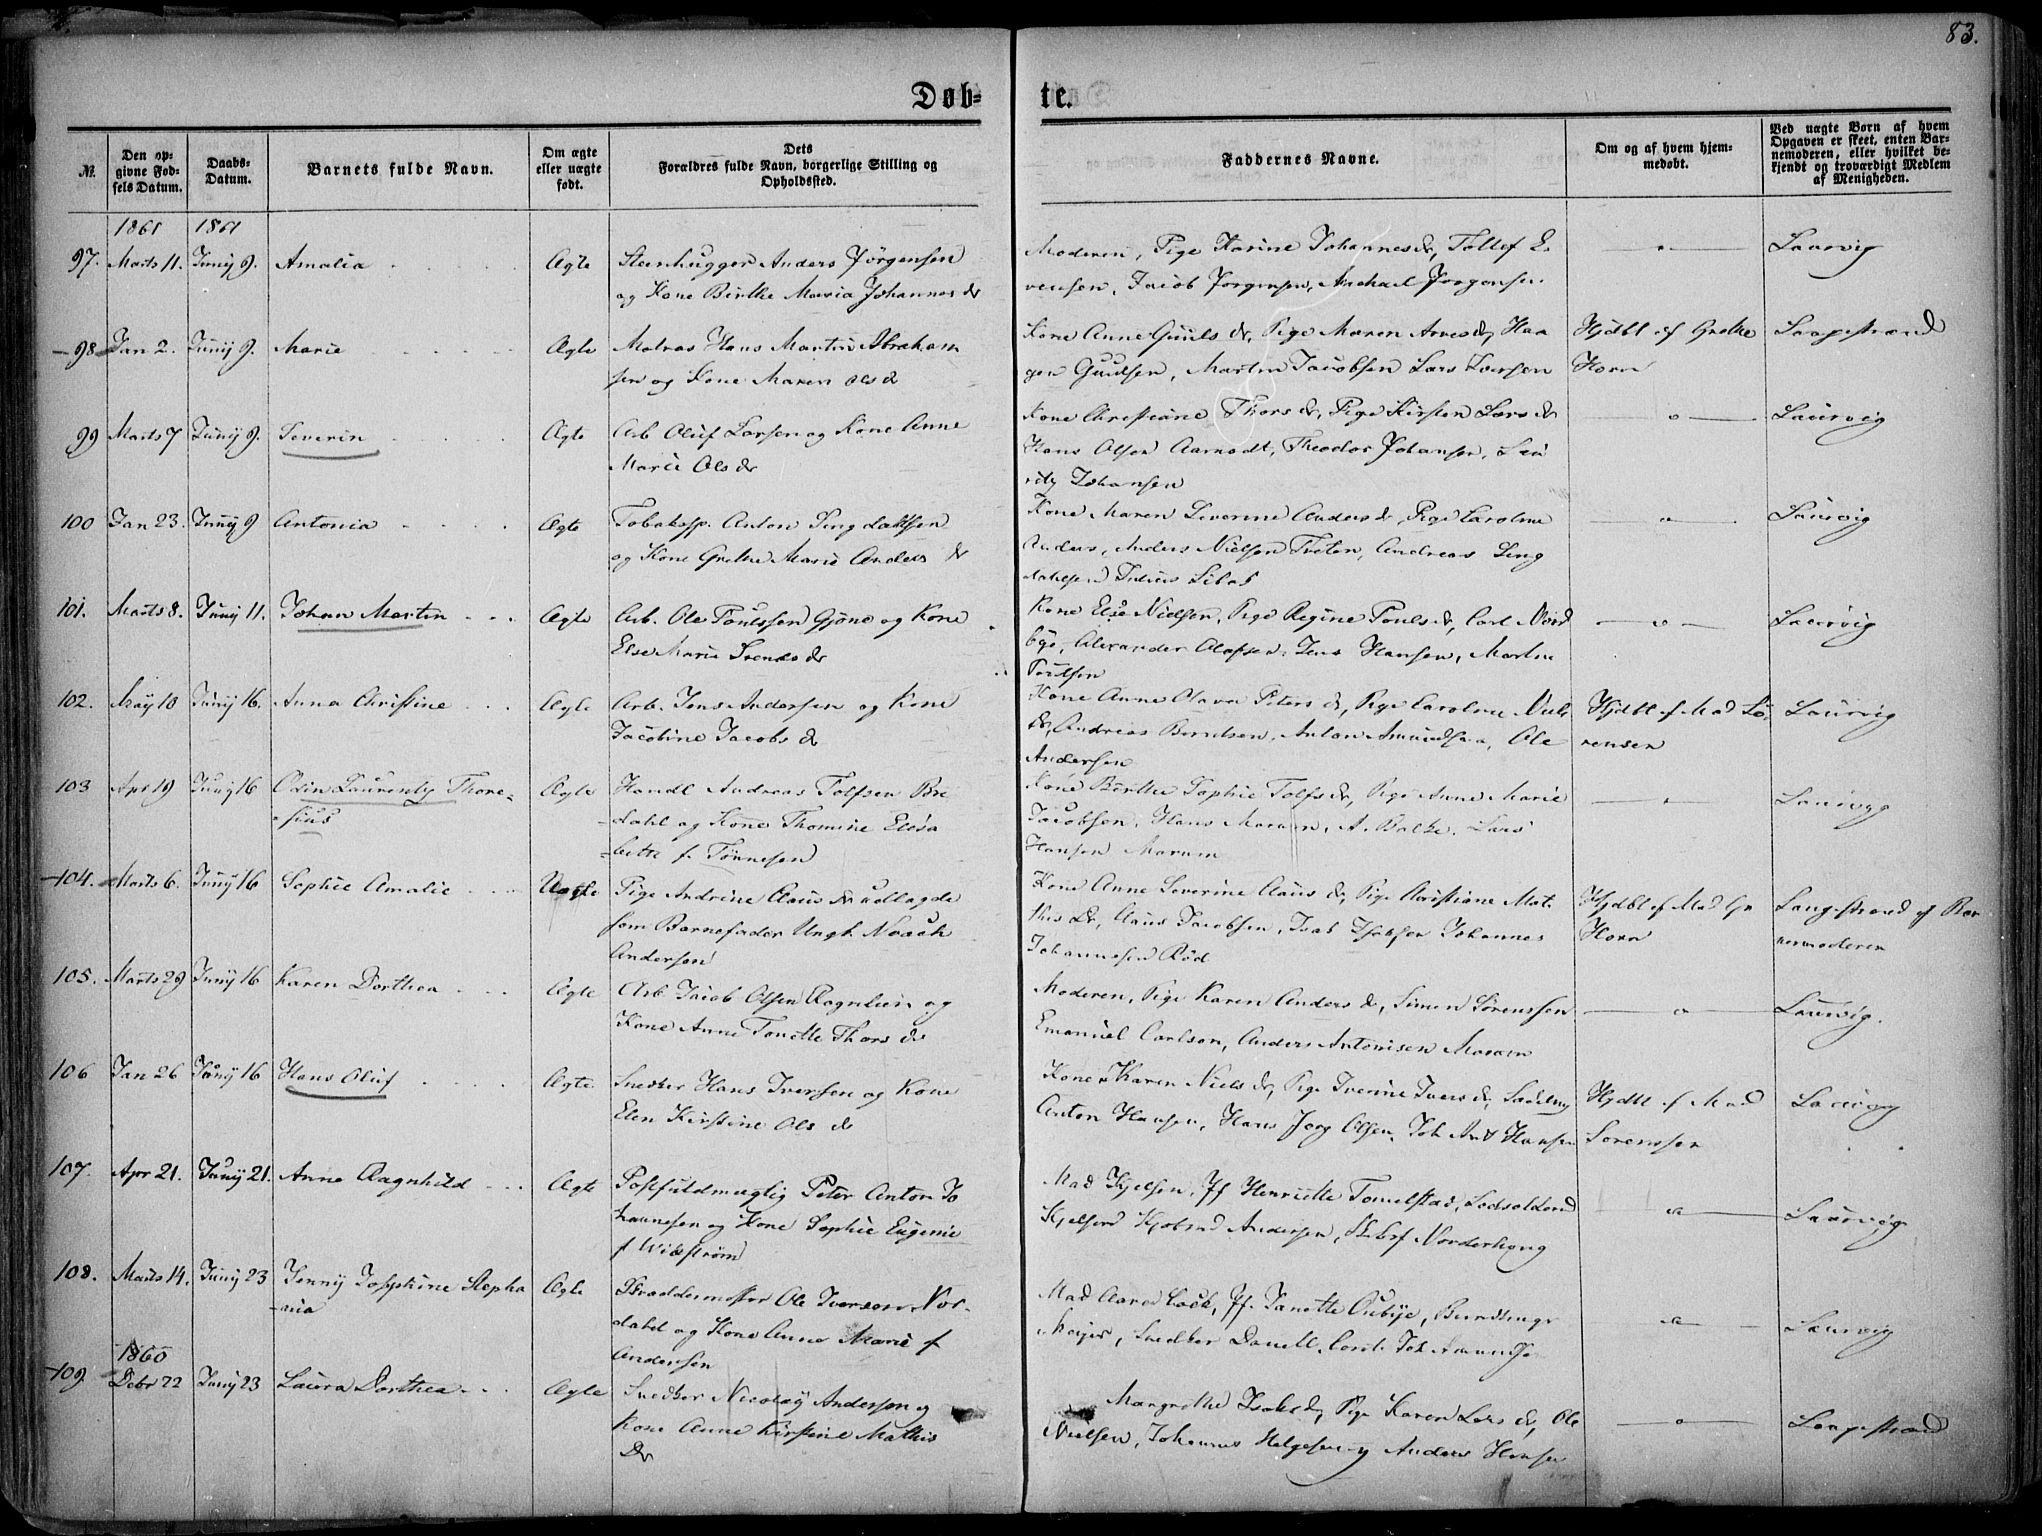 83.
Døb-
te.
№
Den op-
givne Fød-
sels Datum.
Daabs-
Datum.
Barnets fulde Navn.
Om ægte
eller uægte
født.
Dets
Forældres fulde Navn, borgerlige Stilling og
Opholdssted.
Faddernes Navne.
Om og af hvem hjem-
medøbt.
Ved uægte Børn af hvem
Opgaven er skeet, enten Bar-
nemoderen, eller hvilket be-
kjendt og troværdigt Medlem
af Menigheden.
1861 1861
97. Marts 11. Junij 9. Amalia Ægte Steenhugger Anders Jørgensen
og Kone Birthe Maria Johannes dr
Moderen, Pige Karine Johannesdr, Tollef E-
vensen, Jacob Jørgensen, Michael Jørgensen
Laurvig
98 Jan 2. Junij 9. Marie Ægte Matros Hans Martin Abraham
sen og Kone Maren Olsd
Kone Anne Guuls dr, Pige Maren Arnesdr, Haa
gen Guulsen, Martin Jacobsen Lars Larsen
Hjdbt af Grethe
Horn
Langestrand
99 Marts 7 Junij 9. Severin Ægte Arb Oluf Larsen og Kone Anne
Marie Ols dr
Kone Christiane Thors dr, Pige Kirsten Lars dr
Hans Olsen Aamodt, Theodor Johansen, Lau
ritz Johansen
Laurvig
100 Jan 23. Junij 9 Antonia Ægte Tobaksp. Anton Lingdahlsen
og Kone Grethe Marie Anders dr
Kone Maren Severine Anders dr, Pige Caroline
Anders, Anders Nielsen Tveten, Andreas Ling
dahlsen
Laurvig
101. Marts 8. Junij 11. Johan Martin Ægte Arb. Ole Poulssen Gjøne og Kone
Else Marie Svends dr
Kone Else Nielsen, Pige Regine Pouls dr, Carl Nord
bye, Alexander Olafsen, Jens Hansen, Martin
Poulsen
Laurvig
102. May 10 Junij 16. Anna Christine Ægte Arb. Jens Andersen og Kone
Jacobine Jacobs dr
Kone Anne Olava Peters dr, Pige Caroline Niels
dr, Andreas Berntsen, Anton Amundsen, Ole
Andersen
Hjdbt af Mad Lo-
rensen
Laurvig
103 Apr 19 Junij 16 Odin Laurentz Thore-
sius Ægte Handl Andreas Tolfsen Bre
dahl og Kone Thomine Elisa
bette f. Tønnesen
Kone Birthe Sophie Tolfs dr, Pige Anne Marie
Jacobsen, Hans Marum, A. Balke, Lars
Hansen Marum
Laurvig
104. Marts 6. Junij 16 Sophie Amalie Uægte Pige Andrine Claus dr udlagde
som Barnefader Ungk. Noach
Andersen
Kone Anne Severine Claus dr, Pige Christiane Mat-
this Dr, Claus Jacobsen, Isak Isaksen Johannes
Johannesen Rød
Hjdbt af Mad Gr
Horn
Langestrand af Bar
nemoderen
105. Marts 29 Junij 16 Karen Dorthea Ægte Arb Jacob Olsen og
Kone Anne Tonette Thors dr
Moderen, Pige Karen Anders dr, Simen Sørenssen
Emanuel Carlsen, Anders Antonisen Marum
Laurvig.
106 Jan 26 Junij 16 Hans Oluf Ægte Snedker Hans Iversen og Kone
Elen Kirstine Ols dr
Kone Karen Niels dr, Pige Iverine Ivers dr,
Anton Hansen, Hans Jørg Olsen, Joh Ant Hansen
Hjdbt af Mad
Sørenssen
Laurvig
107. Apr 21. Junij 21. Anne Ragnhild Ægte Postfuldmægtig Peter Anton Jo
hannesen og Kone Sophie Eugenie
f Widstrøm
Mad Kjelsen, Jf Henriette Tomelstad, Lodsolderm
Kjelsen Andersen, Norderhoug
Laurvig
108. Marts 14. Junij 23 Jenny Josephine Stepha
nia Ægte Skræddermester Ole Iversen Nor-
dahl og Kone Anne Marie f
Andersen
Mad Jf. Janette Oubye,
Meyer, Snedker
Laurvig
1860
109. Debr 22 Junij 23 Laura Dorthea Ægte Snedker Nicolay Andersen og
Kone Anne Kirstine Mathis
Dr
Margrethe Isaksdr, Pige Karen Lars dr, Ole
Nielsen, Johannes Helgesen og Anders Hansen
Langestrand